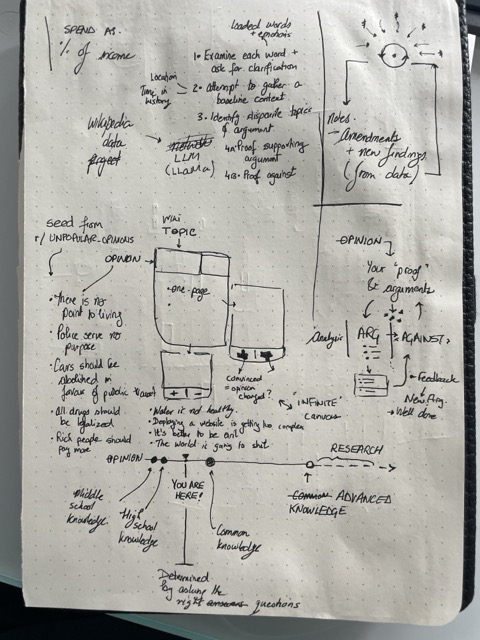 SPEND AS.
% of income
Loaded words
+ emphasis
1. Examine each word +
ask for clarification
Location
Time in
history
2. attempt to gather a
baseline context
3. Identify disparite topics
of argument
4A. Proof supporting
argument
4B. Proof against
wikipedia
data
project
LLM
(LLaMa)
Notes.
Amendments
+ new findings
(from data)
seed from
r/UNPOPULAR-OPINIONS
OPINION
wiki
TOPIC
one-page
• There is no
point to living
• Police serve no
purpose
• Cars should be
abolished in
favour of public transit
• All drugs should
be legalized
• Rich people should
pay more
+ -
+
convinced
= opinion
changed?
"INFINITE"
canvas
• Water is not healthy.
• Deploying a website is getting too complex
• It's better to be evil
• The world is going to shit.
OPINION
Your "proof"
& arguments
Analysis
ARG
AGAINST
Feedback
New Arg.
Well done
OPINION
YOU ARE
HERE!
RESEARCH
Common ADVANCED
KNOWLEDGE
Middle
school
knowledge
High
school
knowledge
Common
knowledge
Determined
by asking the
right answers questions